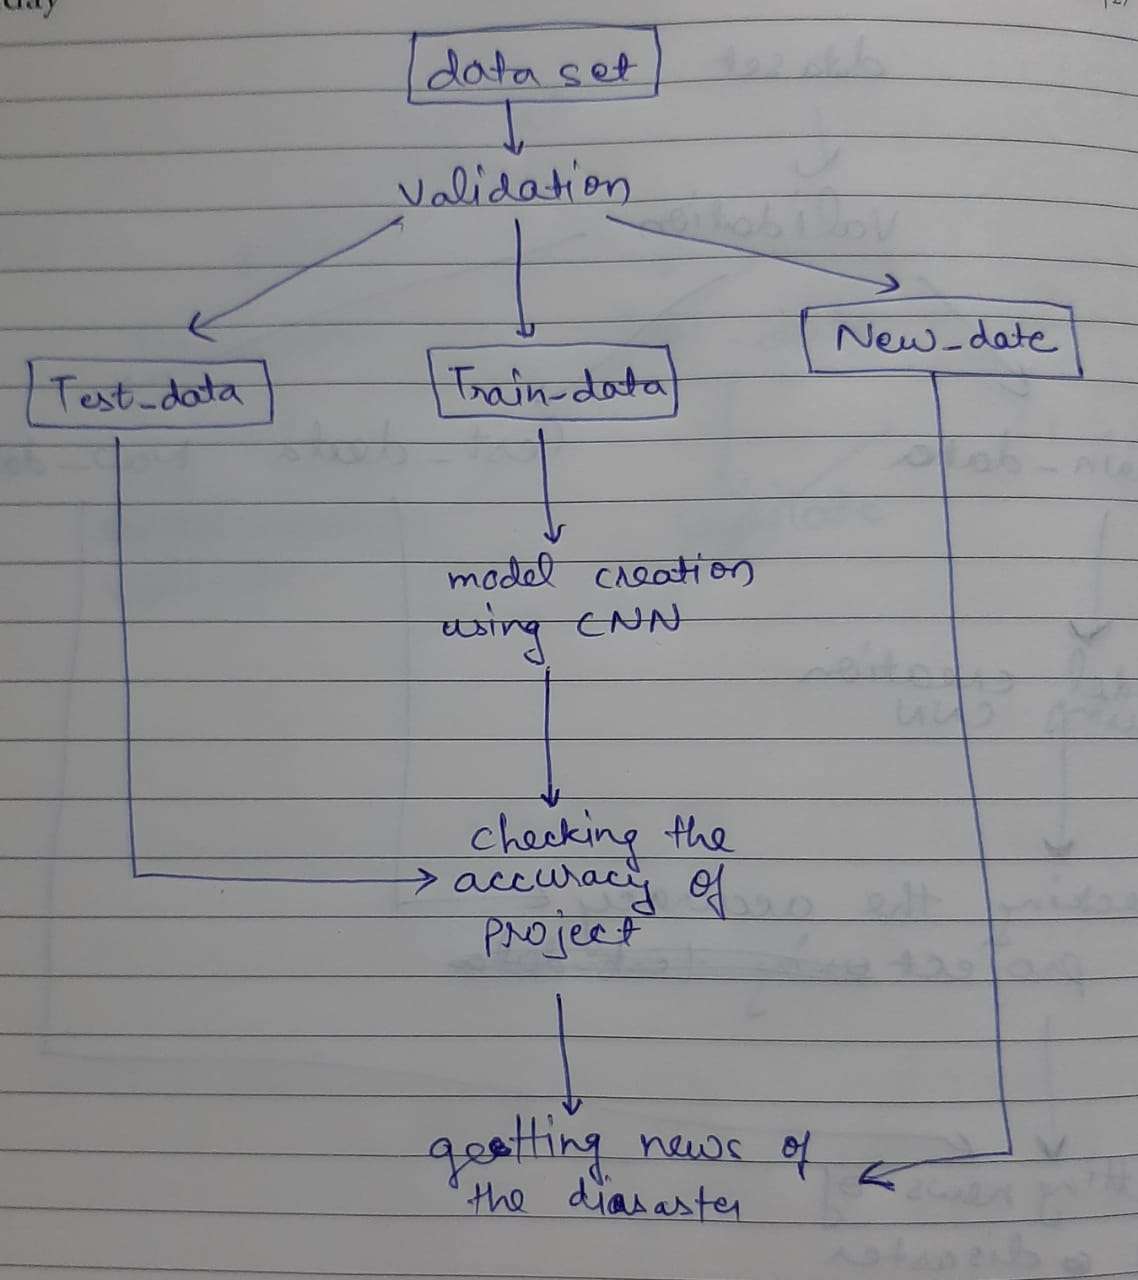 day
data set
validation
New_date
Test_data
Train-data
model creation
using CNN
checking the
accuracy of
project
geetting news of
the diasaster